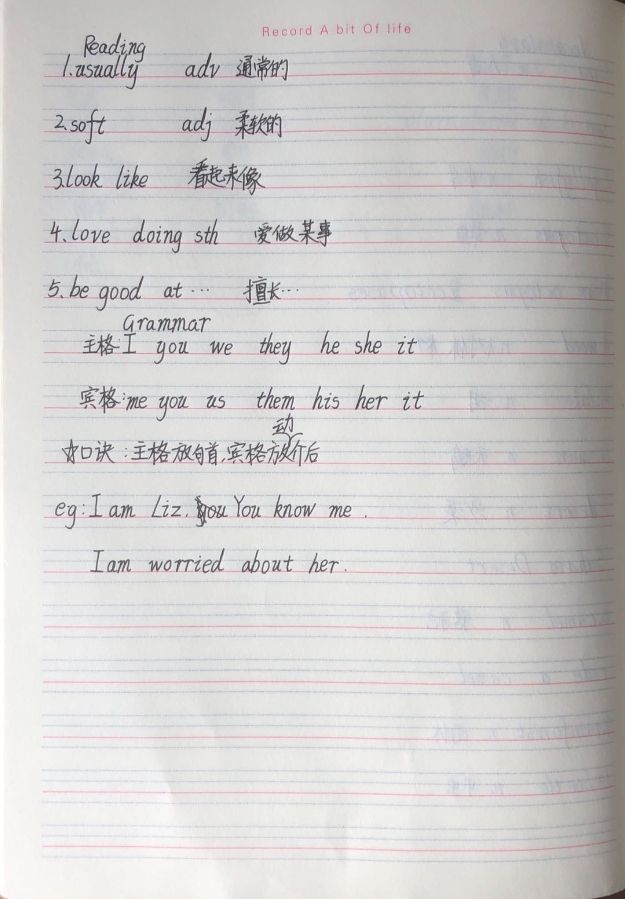 Record A bit Of life
Reading
1.usually adv 通常的
2.soft adj 柔软的
3.look like 看起来像
4.love doing sth 爱做某事
5.be good at … 擅长…
Grammar
主格:I you we they he she it
宾格:me you us them his her it
动
☆口诀:主格放句首,宾格放介后
eg:I am Liz. You know me.
I am worried about her.